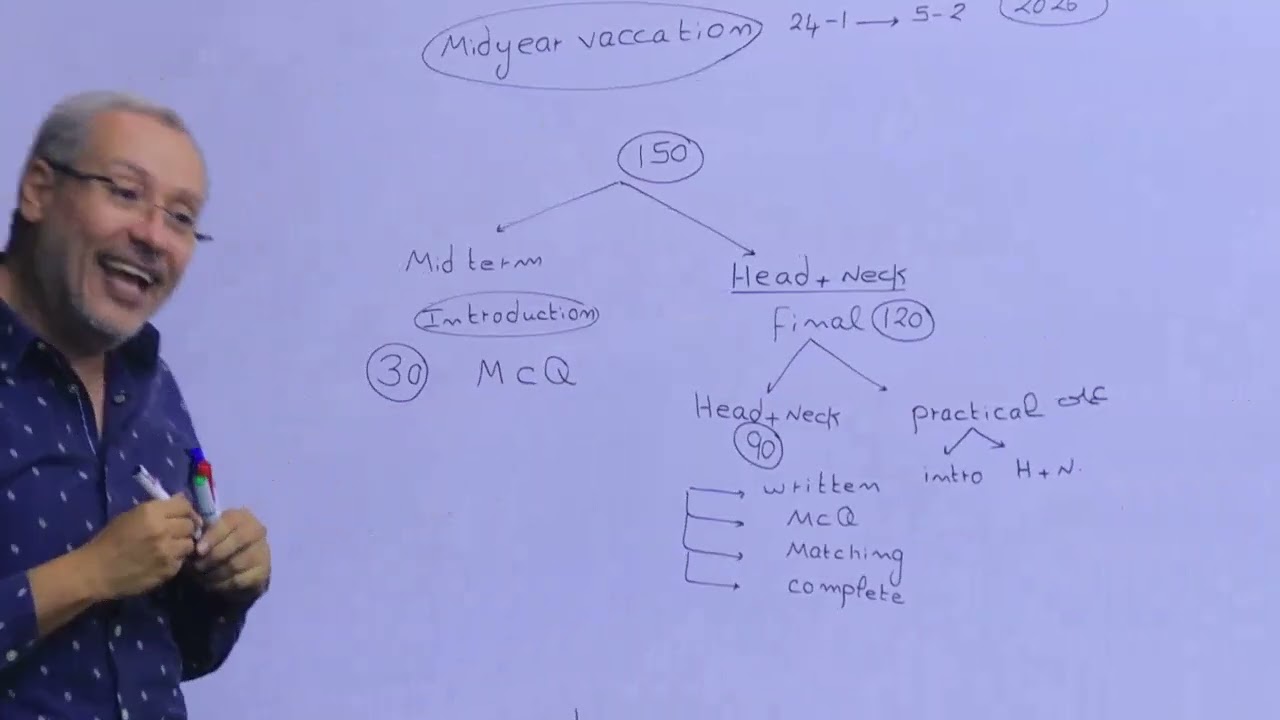 Midyear vaccation 24-1 → 5-2 2026
150
Mid term
Head + Neck
Introduction
Final 120
30 McQ
Head + Neck
practical
90
intro H + N.
written
McQ
Matching
complete